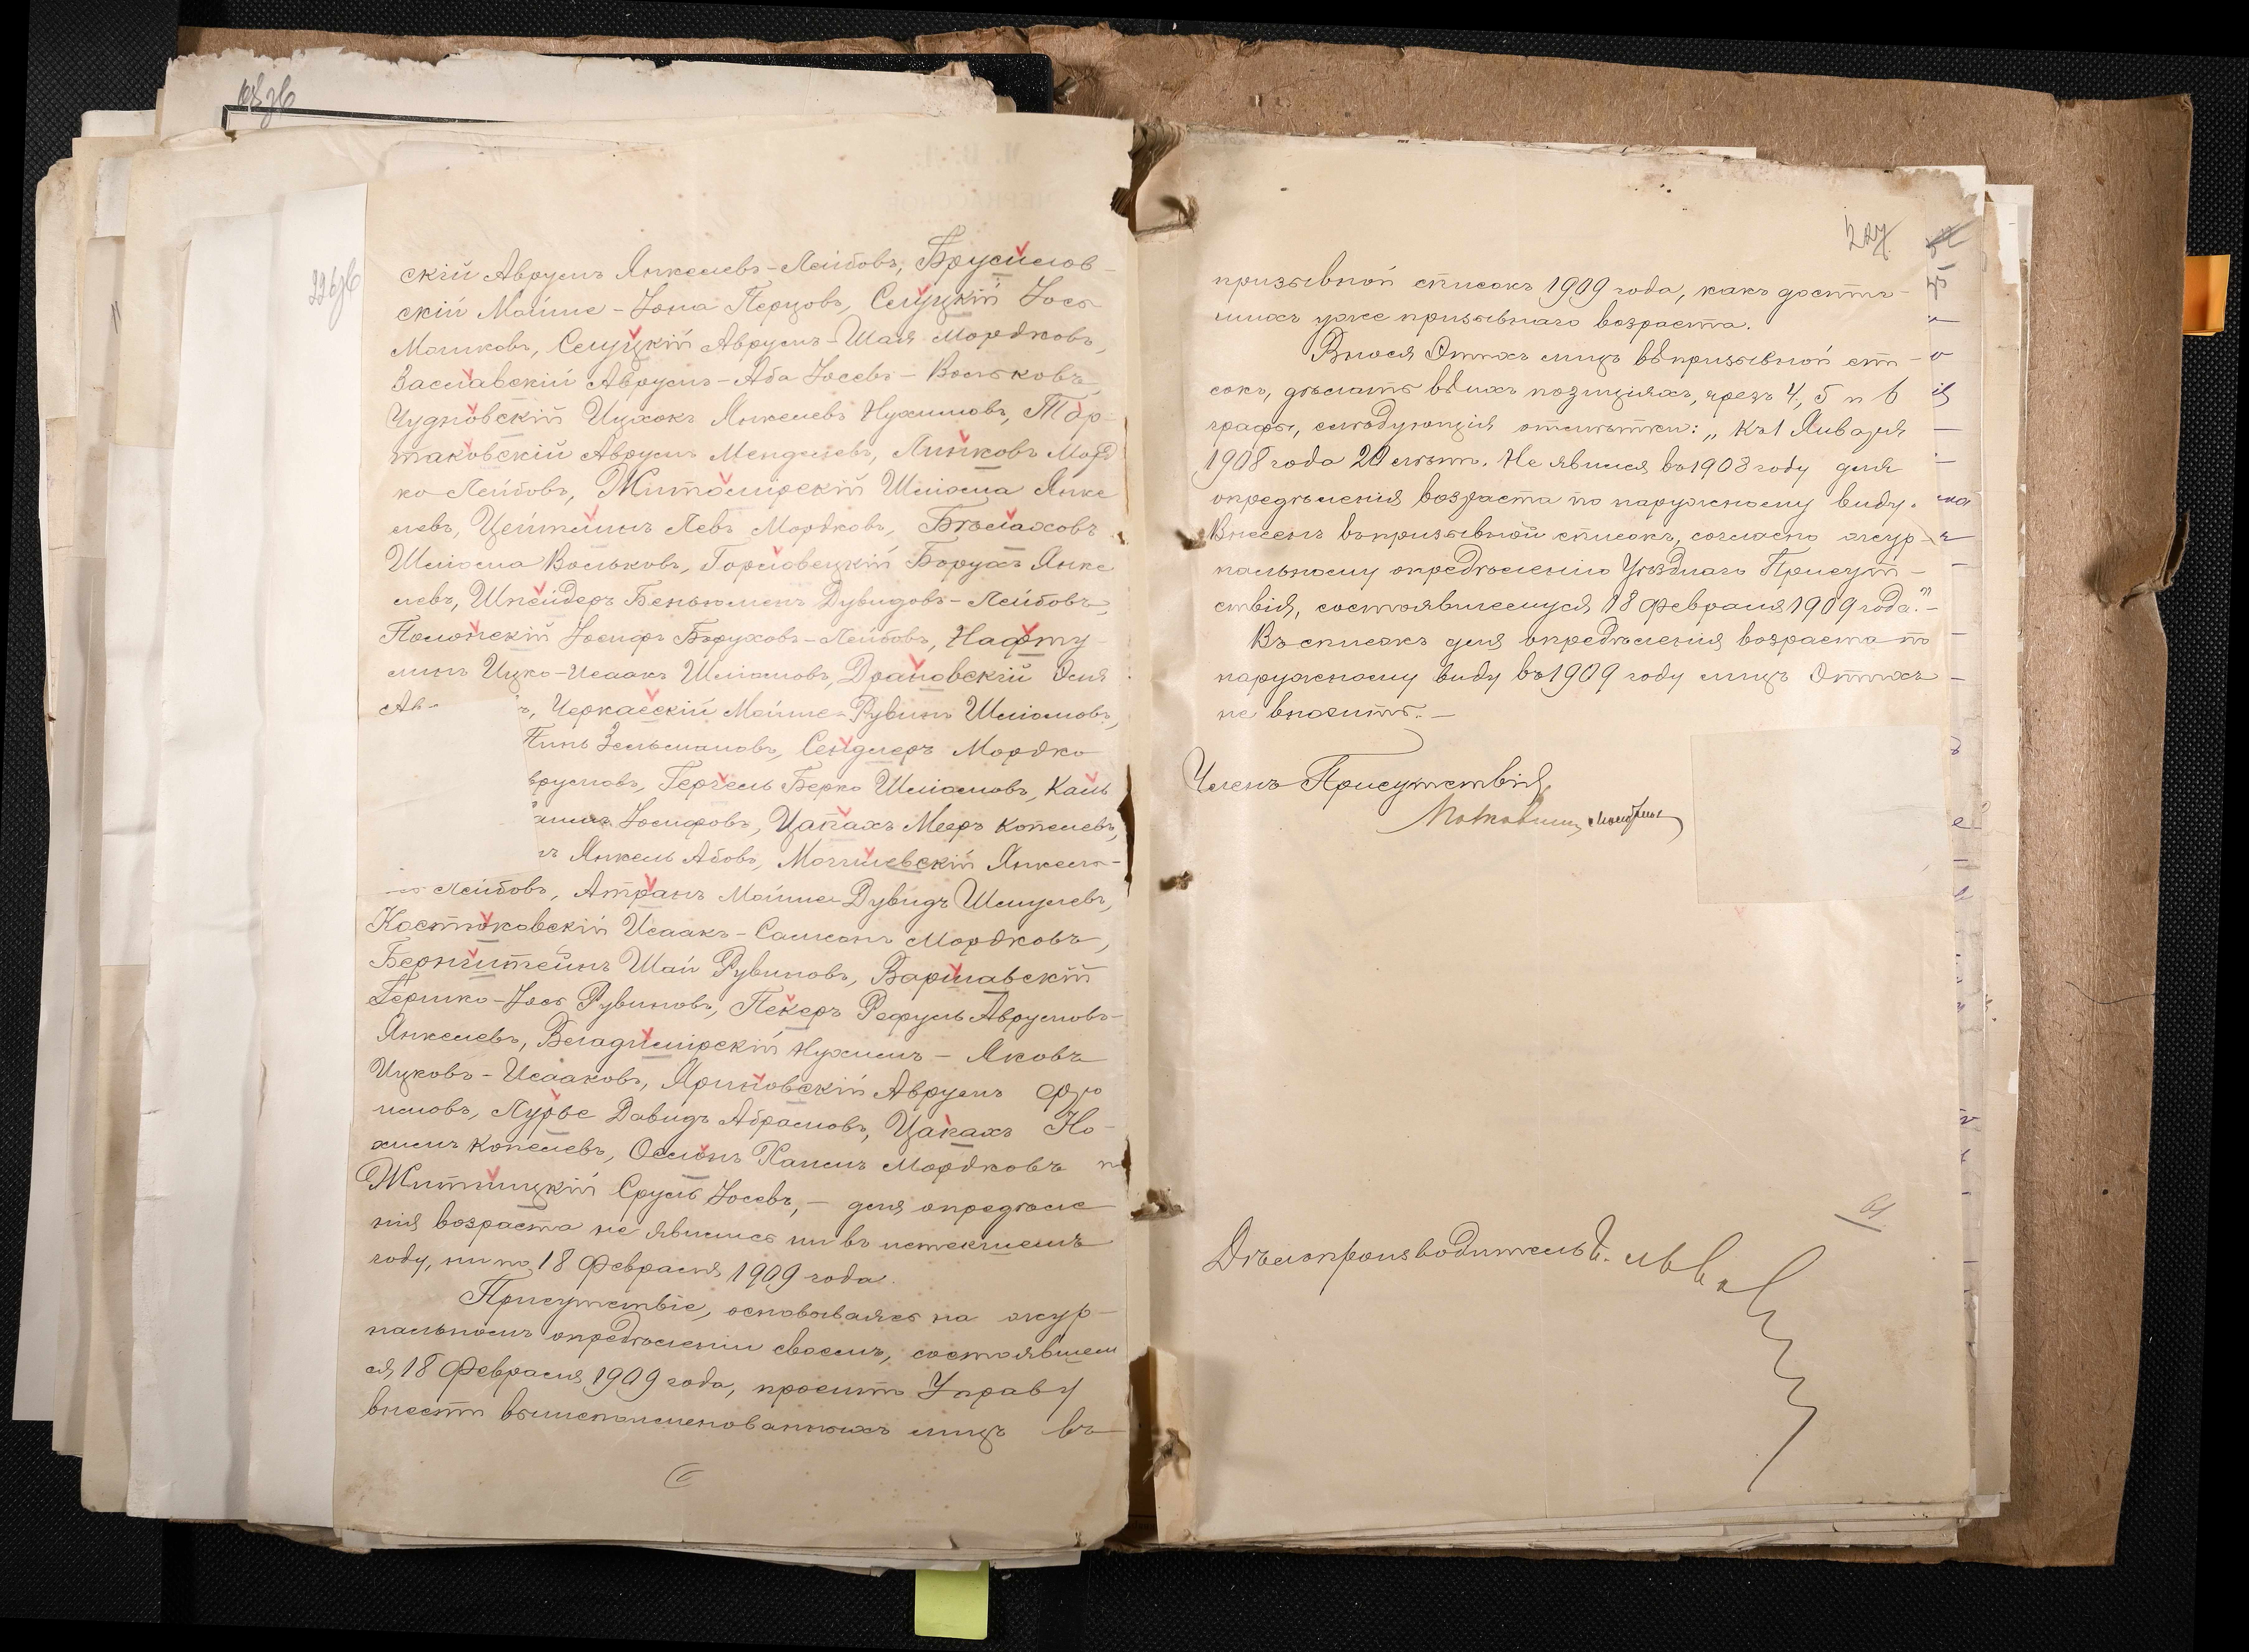 226об
скій Аврумъ Янкелевъ-Лейбовъ, Брусилов-
скій Мойше-Іона Перцовъ, Слуцкій Іось
Мошковъ, Слуцкій Аврумъ-Шая Мордковъ,
Заславскій Аврумъ-Аба Іосевъ-Вольковъ,
Чудновскій Ицхокъ Янкелевъ Нухимовъ, Тор-
маковскій Аврумъ Менделевъ, Линковъ Морд
ко Лейбовъ, Житомирскій Шліома Янке
левъ, Цейтлинъ Левъ Мордковъ, Бѣлаховъ
Шліома Вольковъ, Гороловецкій Борухъ Янке
левъ, Шнейдеръ Беньюменъ Дувидовъ-Лейбовъ,
Полонскій Іосифъ Боруховъ-Лейбовъ, Нафту
линъ Ицко-Исаакъ Шліомовъ, Драновскій Эля
Ав- ъ, Черкасскій Мойше-Рувинъ Шліомовъ,
Пинь Зельмановъ, Сендлеръ Мордко
врумовъ, Герчель Берко Шліомовъ, Каль
Іосифовъ, Цапахъ Мееръ Копелевъ,
Янкель Абовъ, Могилевскій Янкель-
Лейбовъ, Атранъ Мойше-Дувидъ Шмулевъ,
Костюковскій Исаакъ-Самсонъ Мордковъ,
Бернштейнъ Шай Рувиновъ, Варшавскій
Гершко-Іось Рувиновъ, Пекеръ Рефуль Аврумовъ-
Янкелевъ, Владимирскій Нухимъ-Яковъ
Ицковъ-Исааковъ, Яриновскій Аврумъ Фро
имовъ, Лурье Давидъ Абрамовъ, Цапахъ Но-
химъ Копелевъ, Ослонъ Хаимъ Мордковъ и
Житницкій Сруль Іосевъ, - для опредѣле
нія возраста не явились ни въ истекшемъ
году, ни по 18 Февраля 1909 года.
Присутствіе, основываясь на жур-
нальномъ опредѣленіи своемъ, состоявшем
ся 18 Февраля 1909 года, проситъ Управу
внести вышепоименованныхъ лицъ въ
227
призывной списокъ 1909 года, какъ достиг-
шихъ уже призывнаго возраста.
Внося этихъ лицъ въ призывной спи-
сокъ, дѣлать въ ихъ позиціяхъ, чрезъ 4, 5 и 6
графы, слѣдующія отмѣтки: „Къ 1 Января
1908 года 20 лѣтъ. Не явился въ 1908 году для
опредѣленія возраста по наружному виду.
Внесенъ въ призывной списокъ, согласно жур-
нальному опредѣленію Уѣзднаго Присут-
ствія, состоявшемуся 18 февраля 1909 года."-
Въ списокъ для опредѣленія возраста по
наружному виду въ 1909 году лицъ этихъ
не вносить.-
Членъ Присутствія,
Дѣлопроизводитель